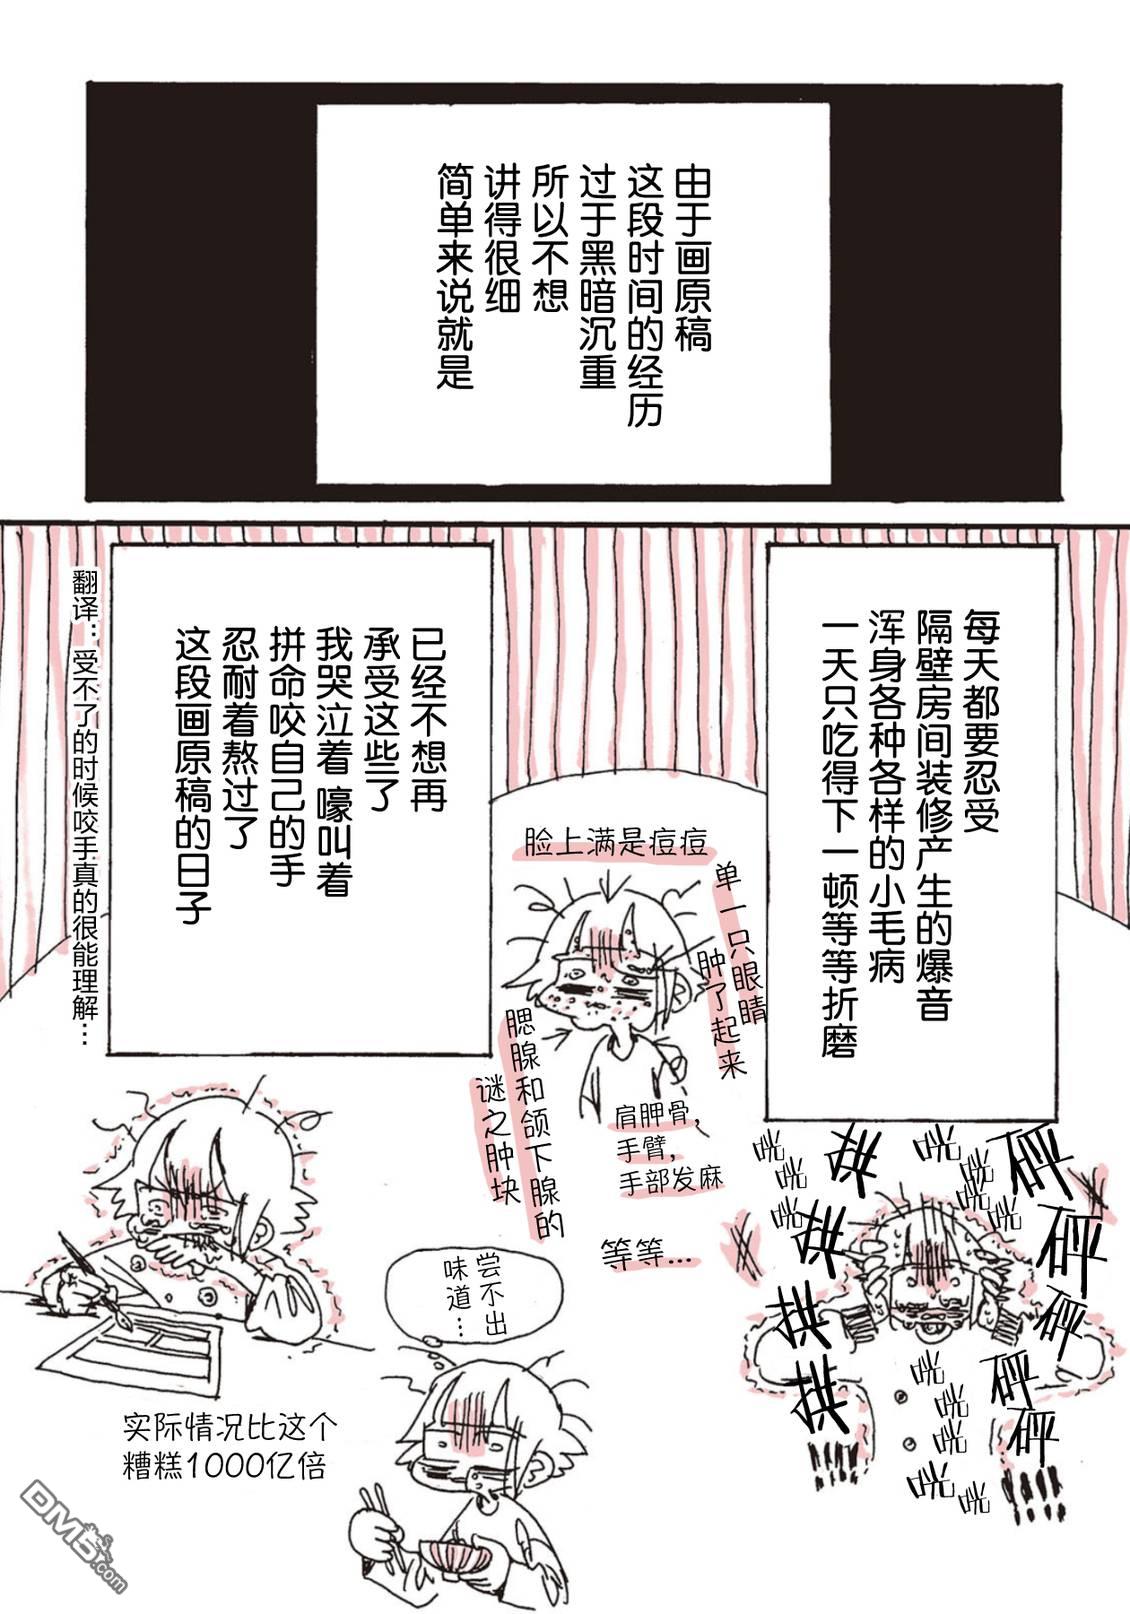 由于画原稿
这段时间的经历
过于黑暗沉重
所以不想
讲得很细
简单来说就是
每天都要忍受
隔壁房间装修产生的爆音
浑身各种各样的小毛病
一天只吃得下一顿等等折磨
脸上满是痘痘
单一只眼睛
肿了起来
腮腺和颌下腺的
谜之肿块
肩胛骨，
手臂，
手部发麻
等等…
已经不想再
承受这些了
我哭泣着 嚎叫着
拼命咬自己的手
忍耐着熬过了
这段画原稿的日子
翻译：受不了的时候咬手真的很能理解…
砰
砰
砰
砰
砰
尝不出
味道…
实际情况比这个
糟糕1000亿倍
DM5